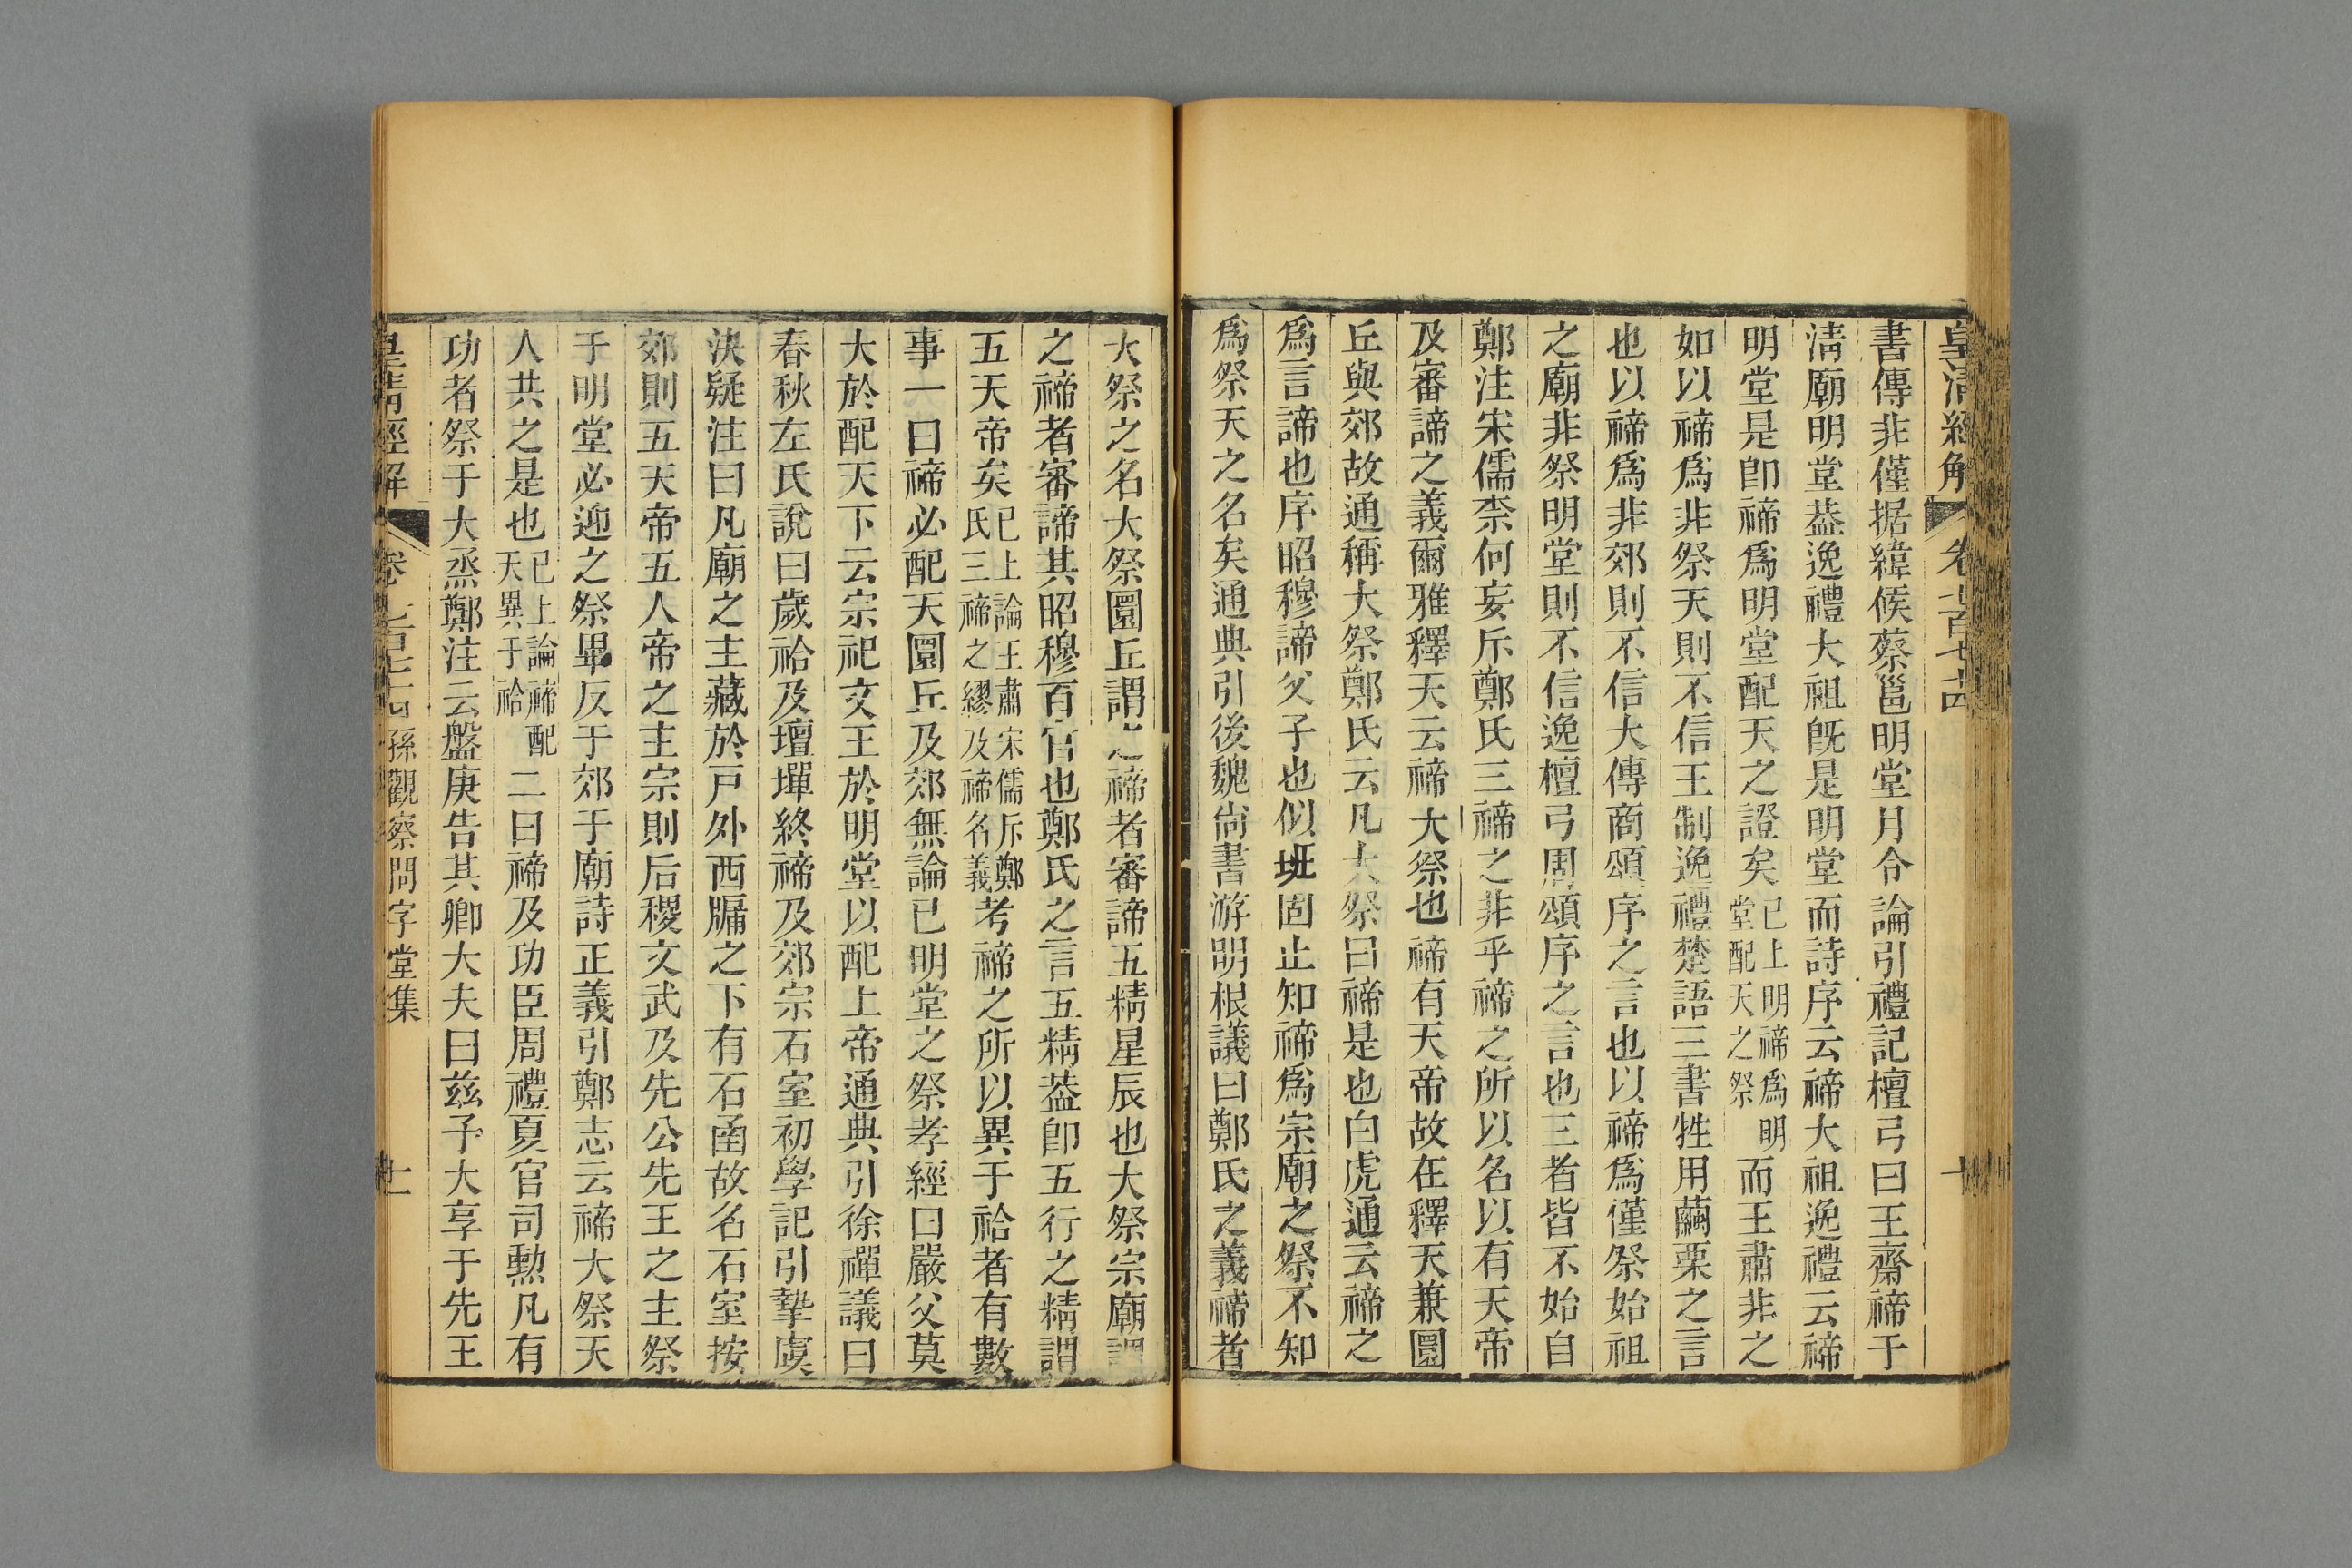 皇清經解 卷七百七十四 十
書傳非僅据緯候蔡邕明堂月令論引禮記檀弓曰王齋禘于
淸廟明堂葢逸禮大祖旣是明堂而詩序云禘大祖逸禮云禘
明堂是卽禘爲明堂配天之證矣已上明禘爲明堂配天之祭而王肅非之
如以禘爲非祭天則不信王制逸禮楚語三書牲用繭栗之言
也以禘爲非郊則不信大傳商頌序之言也以禘爲僅祭始祖
之廟非祭明堂則不信逸檀弓周頌序之言也三者皆不始自
鄭注宋儒柰何妄斥鄭氏三禘之非乎禘之所以名以有天帝
及審諦之義爾雅釋天云禘大祭也禘有天帝故在釋天兼圜
丘與郊故通稱大祭鄭氏云凡大祭曰禘是也白虎通云禘之
爲言諦也序昭穆諦父子也似班固止知禘爲宗廟之祭不知
爲祭天之名矣通典引後魏尙書游明根議曰鄭氏之義禘者
大祭之名大祭圜丘謂之禘者審諦五精星辰也大祭宗廟謂
之禘者審諦其昭穆百官也鄭氏之言五精葢卽五行之精謂
五天帝矣已上論王肅宋儒斥鄭氏三禘之繆及禘名義考禘之所以異于祫者有數
事一曰禘必配天圜丘及郊無論已明堂之祭孝經曰嚴父莫
大於配天下云宗祀文王於明堂以配上帝通典引徐禪議曰
春秋左氏說曰歲祫及壇墠終禘及郊宗石室初學記引摯虞
決疑注曰凡廟之主藏於戸外西牖之下有石函故名石室按
郊則五天帝五人帝之主宗則后稷文武及先公先王之主祭
于明堂必迎之祭畢反于郊于廟詩正義引鄭志云禘大祭天
人共之是也已上論禘配天異于祫二曰禘及功臣周禮夏官司勲凡有
功者祭于大烝鄭注云盤庚告其卿大夫曰兹予大享于先王
皇清經解 卷七百七十四 孫觀察問字堂集 十一